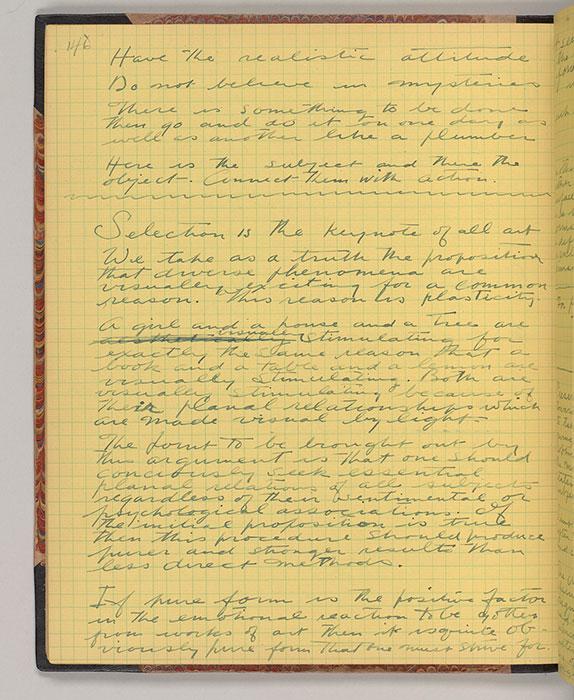 146
Have the realistic attitude
Do not believe in mysteries
There is something to be done
then go and do it on one day as
well as another like a plumber
Here is the subject and there the
object. Connect them with action.
Selection is the keynote of all art
We take as a truth the proposition
that diverse phenomena are
visually exciting for a common
reason. This reason is plasticity.
A girl and a house and a tree are
visually stimulating for
exactly the same reason that a
book and a table and a lemon are
visually stimulating. Both are
visually stimulating because of
their planal relationships which
are made visual by light
The point to be brought out by
this argument is that one should
conciously seek essential
planal relations of all subjects
regardless of their sentimental or
psychological associations. If
the initial proposition is true
then this procedure should produce
purer and stronger results than
less direct methods.
If pure form is the positive factor
in the emotional reaction to be gotten
from works of art then it is quite ob-
viously pure form that one must strive for.